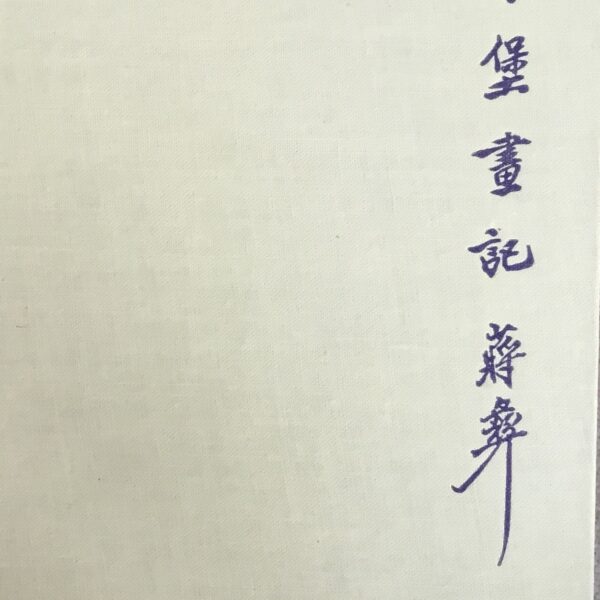 堡畫記 蔣彝